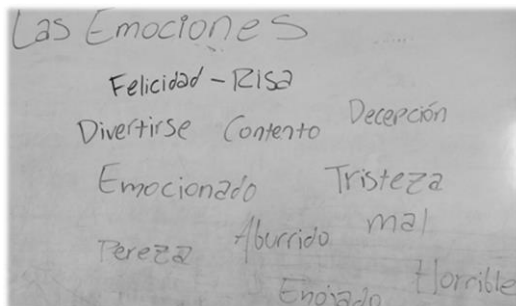 Las Emociones
Felicidad - Risa
Divertirse Contento Decepción
Emocionado Tristeza
Pereza Aburrido mal
Enojado Horrible